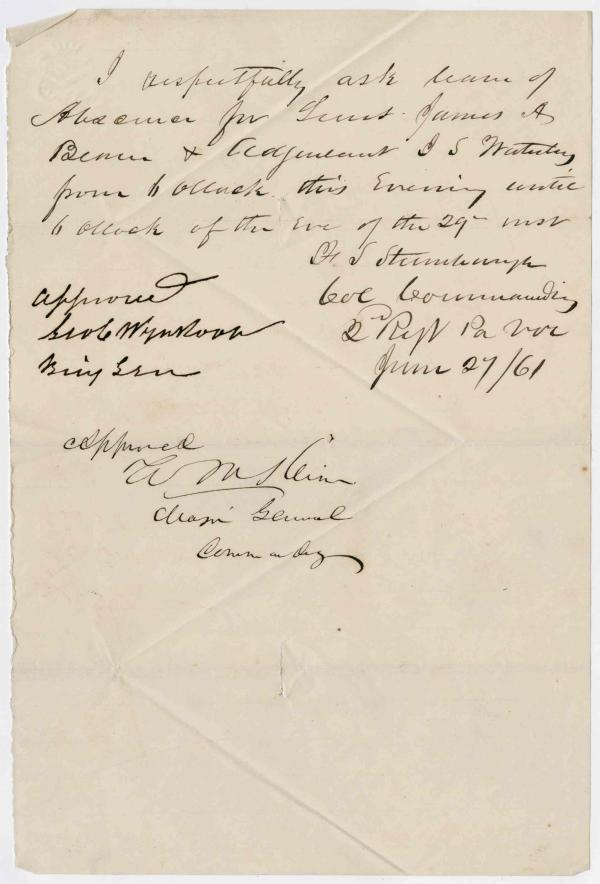 I respectfully ask leave of
Absence for Lieut. James A
Beaver & Adjutant I S Waterbury
from 6 Oclock this Evening until
6 Oclock of the Eve of the 29th inst
F S Stumbaugh
Col Commanding
2nd Regt Pa Vol
June 27/61
Approved
Geo C Wynkoop
Brig Gen
Approved
W H Keim
Major General
Commandg